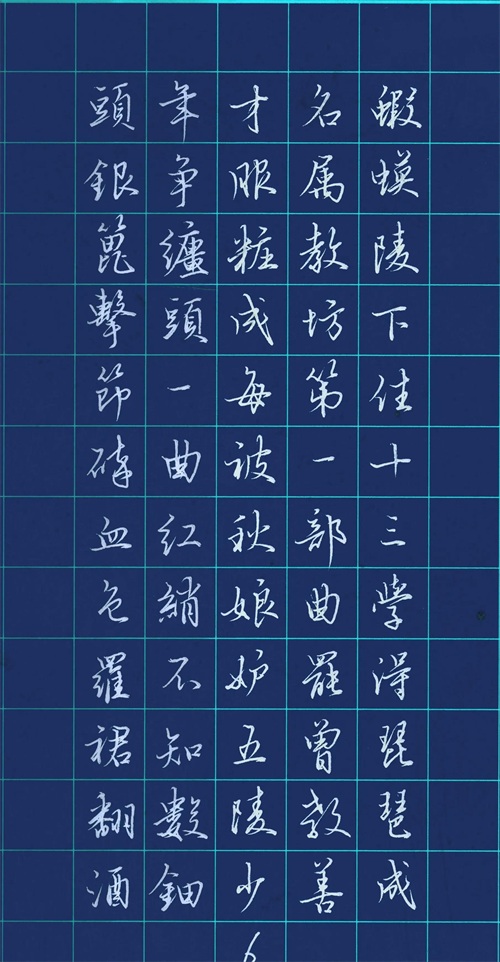 蝦蟆陵下住十三學得琵琶成
名属教坊第一部曲罷曾教善
才服粧成每被秋娘妒五陵少
年争纏頭一曲紅綃不知數鈿
頭銀篦擊節碎血色羅裙翻酒
6